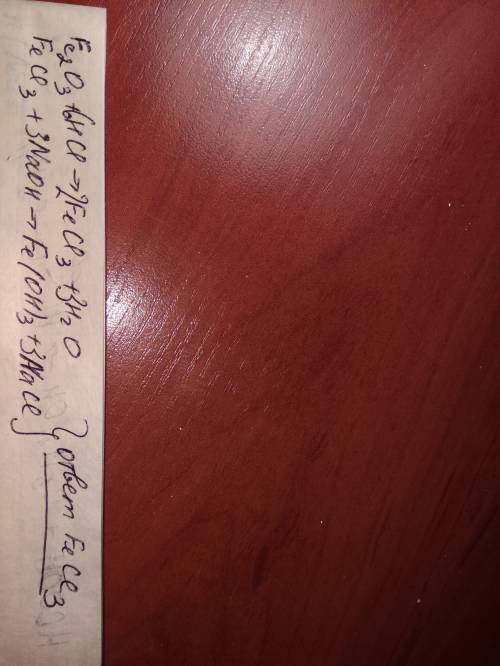 Fe₂O₃ + 6HCl → 2FeCl₃ + 3H₂O
FeCl₃ + 3NaOH → Fe(OH)₃ + 3NaCl } ответ FeCl₃